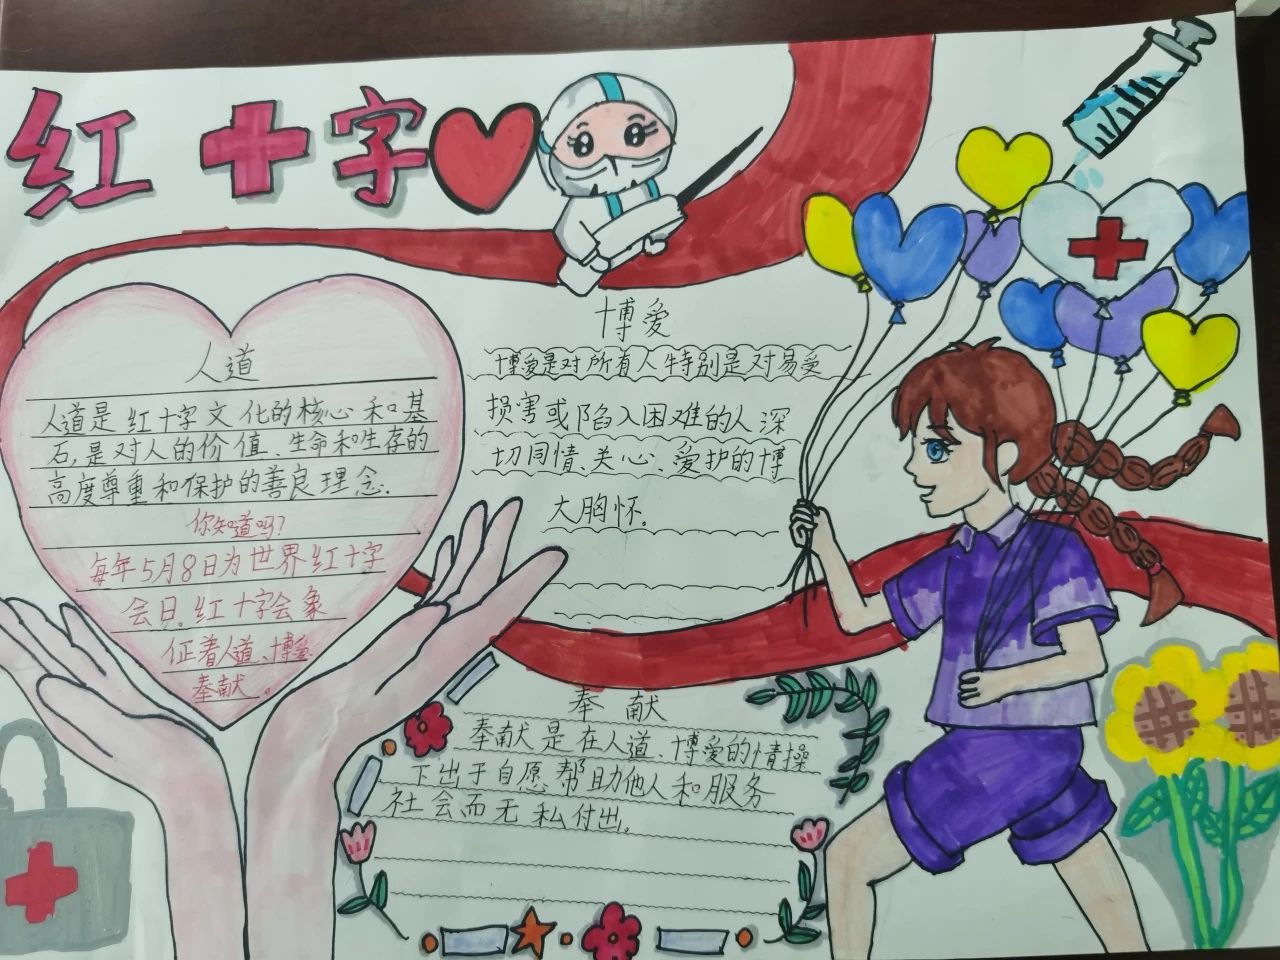 红十字
人道
人道是红十字文化的核心和基
石,是对人的价值、生命和生存的
高度尊重和保护的善良理念.
你知道吗?
每年5月8日为世界红十字
会日.红十字会象
征着人道、博爱.
奉献。
博爱
博爱是对所有人特别是对易受
损害或陷入困难的人深
切同情、关心、爱护的博
大胸怀。
奉献
奉献是在人道、博爱的情操
下出于自愿帮助他人和服务
社会而无私付出。